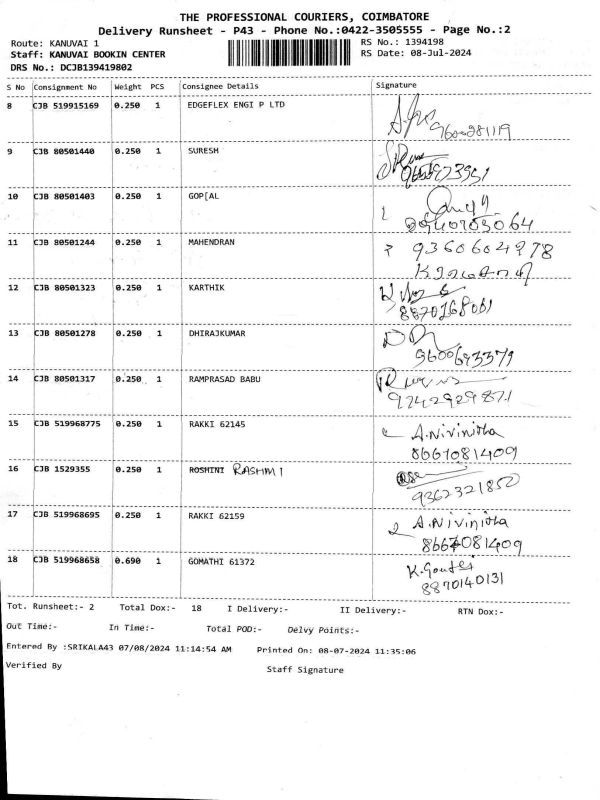 THE PROFESSIONAL COURIERS, COIMBATORE
Delivery Runsheet - P43 - Phone No.:0422-3505555 - Page No.:2
Route: KANUVAI 1 RS No.: 1394198
Staff: KANUVAI BOOKIN CENTER RS Date: 08-Jul-2024
DRS No.: DCJB139419802
S No Consignment No Weight PCS Consignee Details Signature
8 CJB 519915169 0.250 1 EDGEFLEX ENGI P LTD
9600281119
9 CJB 80501440 0.250 1 SURESH
10 CJB 80501403 0.250 1 GOP[AL
11 CJB 80501244 0.250 1 MAHENDRAN 9360604978
12 CJB 80501323 0.250 1 KARTHIK
8870168061
13 CJB 80501278 0.250 1 DHIRAJKUMAR
9600693379
14 CJB 80501317 0.250 1 RAMPRASAD BABU
9242929871
15 CJB 519968775 0.250 1 RAKKI 62145 A.Nivinitha
8667081409
16 CJB 1529355 0.250 1 ROSHINI RASHMI
9362321850
17 CJB 519968695 0.250 1 RAKKI 62159 2 A.Nivinitha
8667081409
18 CJB 519968658 0.690 1 GOMATHI 61372
8870140131
Tot. Runsheet:- 2 Total Dox:- 18 I Delivery:- II Delivery:- RTN Dox:-
Out Time:- In Time:- Total POD:- Delvy Points:-
Entered By :SRIKALA43 07/08/2024 11:14:54 AM Printed On: 08-07-2024 11:35:06
Verified By Staff Signature